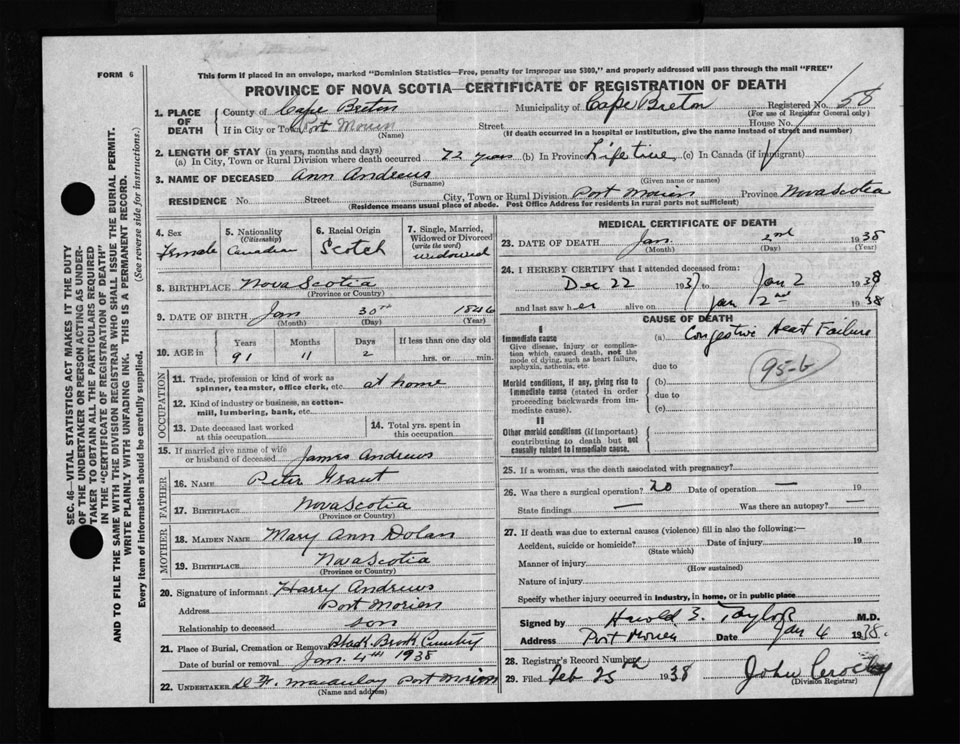 FORM 6
This form if placed in an envelope, marked "Dominion Statistics—Free, penalty for improper use $300," and properly addressed will pass through the mail "FREE"
PROVINCE OF NOVA SCOTIA—CERTIFICATE OF REGISTRATION OF DEATH
SEC. 46—VITAL STATISTICS ACT MAKES IT THE DUTY
OF THE UNDERTAKER OR PERSON ACTING AS UNDER-
TAKER TO OBTAIN ALL THE PARTICULARS REQUIRED
IN THE "CERTIFICATE OF REGISTRATION OF DEATH"
AND TO FILE THE SAME WITH THE DIVISION REGISTRAR WHO SHALL ISSUE THE BURIAL PERMIT.
WRITE PLAINLY WITH UNFADING INK. THIS IS A PERMANENT RECORD.
Every item of information should be carefully supplied. (See reverse side for instructions.)
1. PLACE OF DEATH
County of Cape Breton Municipality of Cape Breton Registered No. 58
(For use of Registrar General only)
If in City or Town Port Morien Street House No.
(Name) (If death occurred in a hospital or institution, give the name instead of street and number)
2. LENGTH OF STAY (in years, months and days)
(a) In City, Town or Rural Division where death occurred 72 years (b) In Province Lifetime (c) In Canada (if immigrant)
3. NAME OF DECEASED Ann Andrews
(Surname) (Given name or names)
RESIDENCE No. Street City, Town or Rural Division Port Morien Province Nova Scotia
(Residence means usual place of abode. Post Office Address for residents in rural parts not sufficient)
4. Sex Female
5. Nationality (Citizenship) Canadian
6. Racial Origin Scotch
7. Single, Married, Widowed or Divorced (write the word) widowed
8. BIRTHPLACE Nova Scotia
(Province or Country)
9. DATE OF BIRTH Jan 30th 1846
(Month) (Day) (Year)
10. AGE in Years Months Days If less than one day old
91 11 2 hrs. or min.
OCCUPATION
11. Trade, profession or kind of work as spinner, teamster, office clerk, etc. at home
12. Kind of industry or business, as cotton-mill, lumbering, bank, etc.
13. Date deceased last worked at this occupation
14. Total yrs. spent in this occupation
15. If married give name of wife or husband of deceased James Andrews
FATHER
16. NAME Peter Grant
17. BIRTHPLACE Nova Scotia
(Province or Country)
MOTHER
18. MAIDEN NAME Mary Ann Dolan
19. BIRTHPLACE Nova Scotia
(Province or Country)
20. Signature of informant Harry Andrews
Address Port Morien
Relationship to deceased son
21. Place of Burial, Cremation or Removal Black Brook
Date of burial or removal Jan. 4th 1938
22. UNDERTAKER Macaulay Port Morien
(Name and address)
MEDICAL CERTIFICATE OF DEATH
23. DATE OF DEATH Jan. 2nd 1938
(Month) (Day) (Year)
24. I HEREBY CERTIFY that I attended deceased from:
Dec 22 1937 to Jan 2 1938
and last saw her alive on Jan 2nd 1938
CAUSE OF DEATH
I
Immediate cause (a) Congestive Heart Failure
Give disease, injury or complication which caused death, not the mode of dying, such as heart failure, asphyxia, asthenia, etc.
due to 95-b
Morbid conditions, if any, giving rise to immediate cause (stated in order proceeding backwards from immediate cause).
(b)
due to
(c)
II
Other morbid conditions (if important) contributing to death but not causally related to immediate cause.
25. If a woman, was the death associated with pregnancy?
26. Was there a surgical operation? no Date of operation — 19
State findings — Was there an autopsy? —
27. If death was due to external causes (violence) fill in also the following:—
Accident, suicide or homicide? Date of injury 19
(State which)
Manner of injury
(How sustained)
Nature of injury
Specify whether injury occurred in industry, in home, or in public place
Signed by Harold E. Taylor M.D.
Address Port Morien Date Jan 4 1938.
28. Registrar's Record Number
29. Filed Feb 25th 1938 John
(Division Registrar)